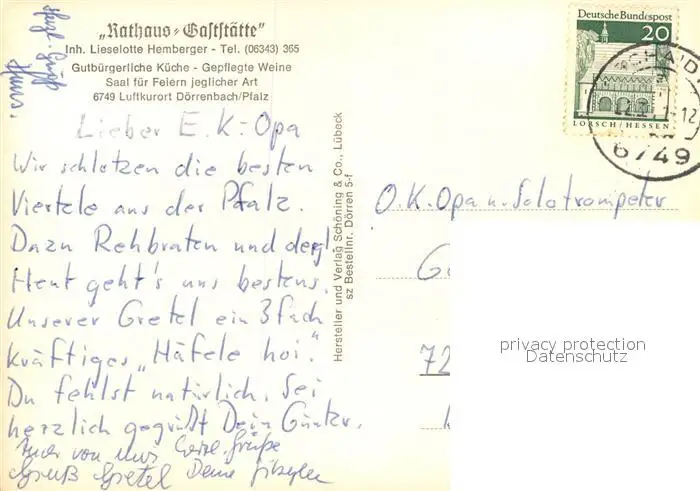 „Rathaus-Gaststätte"
Inh. Lieselotte Hemberger - Tel. (06343) 365
Gutbürgerliche Küche - Gepflegte Weine
Saal für Feiern jeglicher Art
6749 Luftkurort Dörrenbach/Pfalz
Gruß
Hans.
Lieber E.K.-Opa
Wir schlotzen die besten
Viertele aus der Pfalz.
Dazu Rehbraten und dergl.
Heut geht's uns bestens.
Unserer Gretel ein 3fach
kräftiges „Häfele hoi."
Du fehlst natürlich. Sei
herzlich gegrüßt Dein Günter.
Auch von uns herzl. Grüße
Gruß Gretel Deine
Hersteller und Verlag Schöning & Co., Lübeck
sz Bestellnr. Dörren 5-f
Deutsche Bundespost
20
LORSCH/HESSEN
6749
O.K. Opa u. Solotrompeter
G
72
privacy protection
Datenschutz